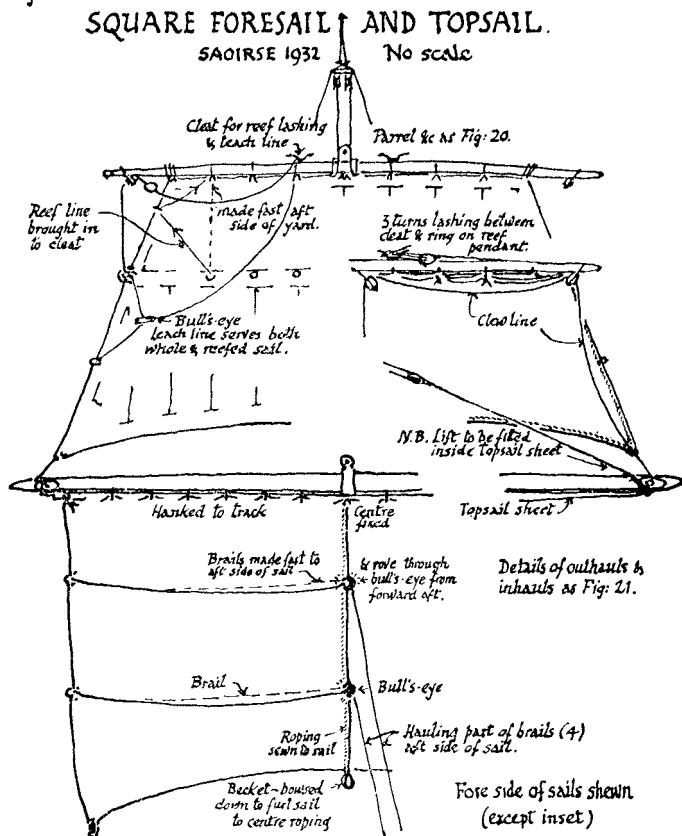 SQUARE FORESAIL AND TOPSAIL.
SAOIRSE 1932 No scale
Cleat for reef lashing
& leach line
Parrel &c as Fig: 20.
Reef line
brought in
to cleat
made fast aft
side of yard.
3 turns lashing between
cleat & ring on reef
pendant.
Bull's-eye
leach line serves both
whole & reefed sail.
Clewline
N.B. Lift to be fitted
inside Topsail sheet
Hanked to track
Centre
fixed
Topsail sheet
Brails made fast to
aft side of sail
& rove through
bull's-eye from
forward aft.
Details of outhauls &
inhauls as Fig: 21.
Brail
Bull's-eye
Roping
sewn to sail
Hauling part of brails (4)
aft side of sail.
Becket - boused
down to furl sail
to centre roping
Fore side of sails shewn
(except inset)